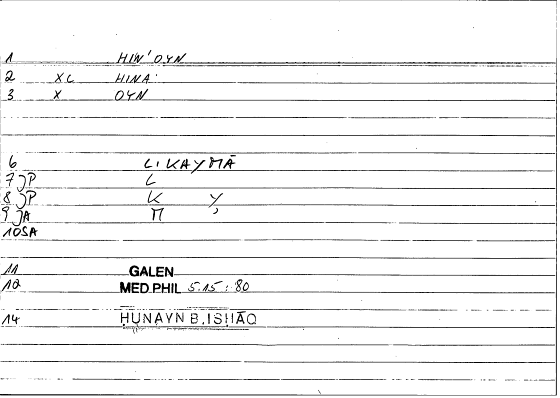 1 HIN'OYN
2 XC HINA'
3 X OYN
6 LI KAYMĀ
7 JP L
8 JP K Y
9 JA M ,
10 SA
11 GALEN
12 MED.PHIL 5.15 : 80
14 ḤUNAYN B.ISḤĀQ